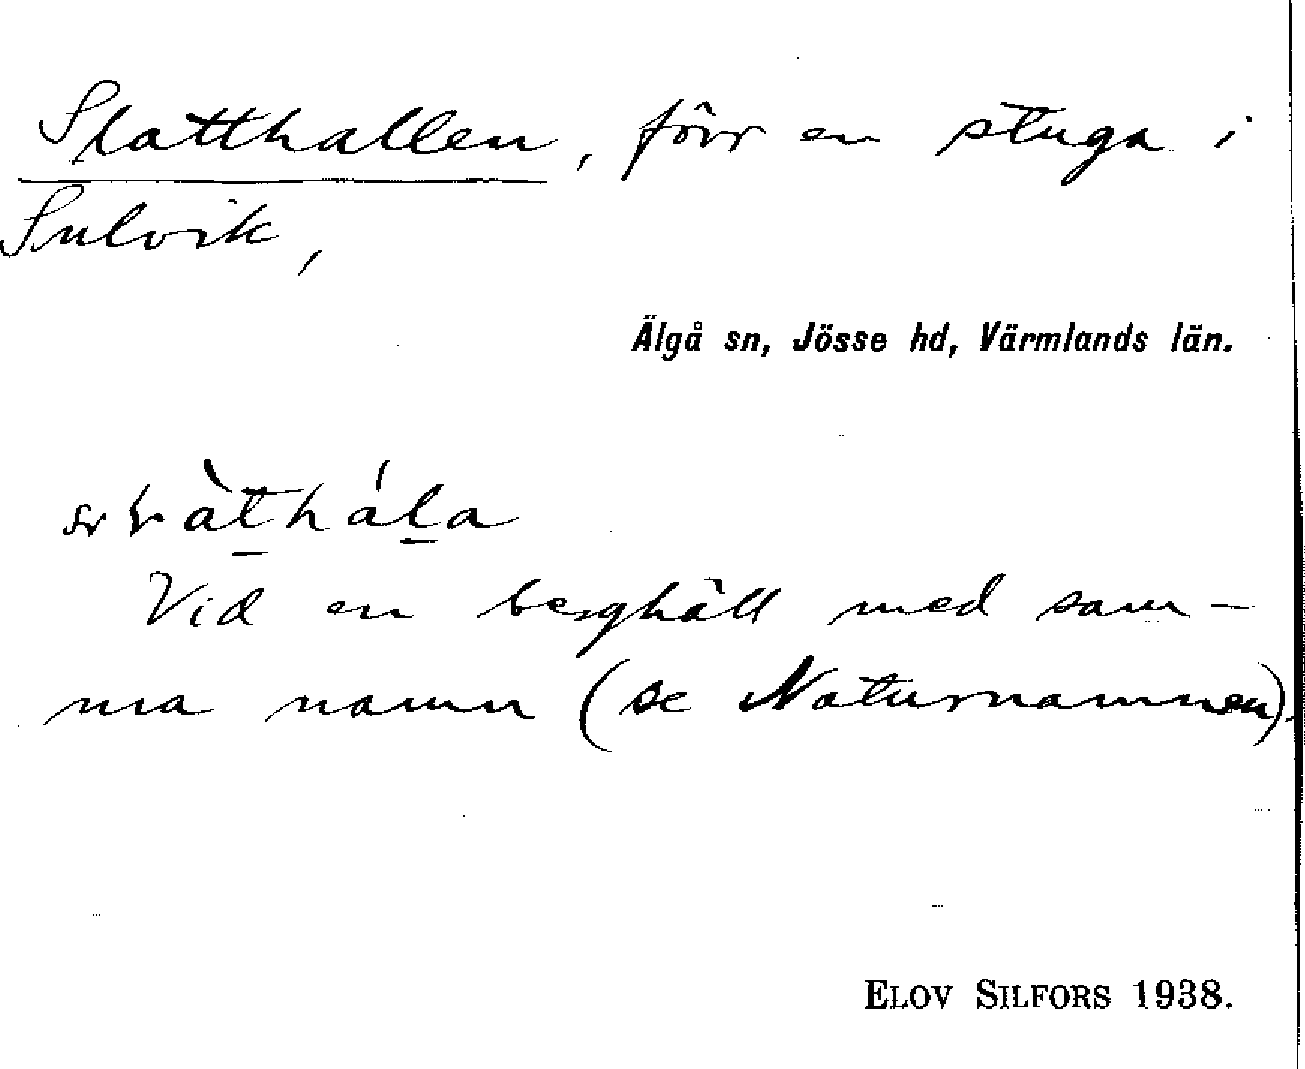 Slatthallen, förr en stuga i
Sulvik,
Älgå sn, Jösse hd, Värmlands län.
Vid en berghäll med sam-
ma namn (se Naturnamnen).
ELOV SILFORS 1938.